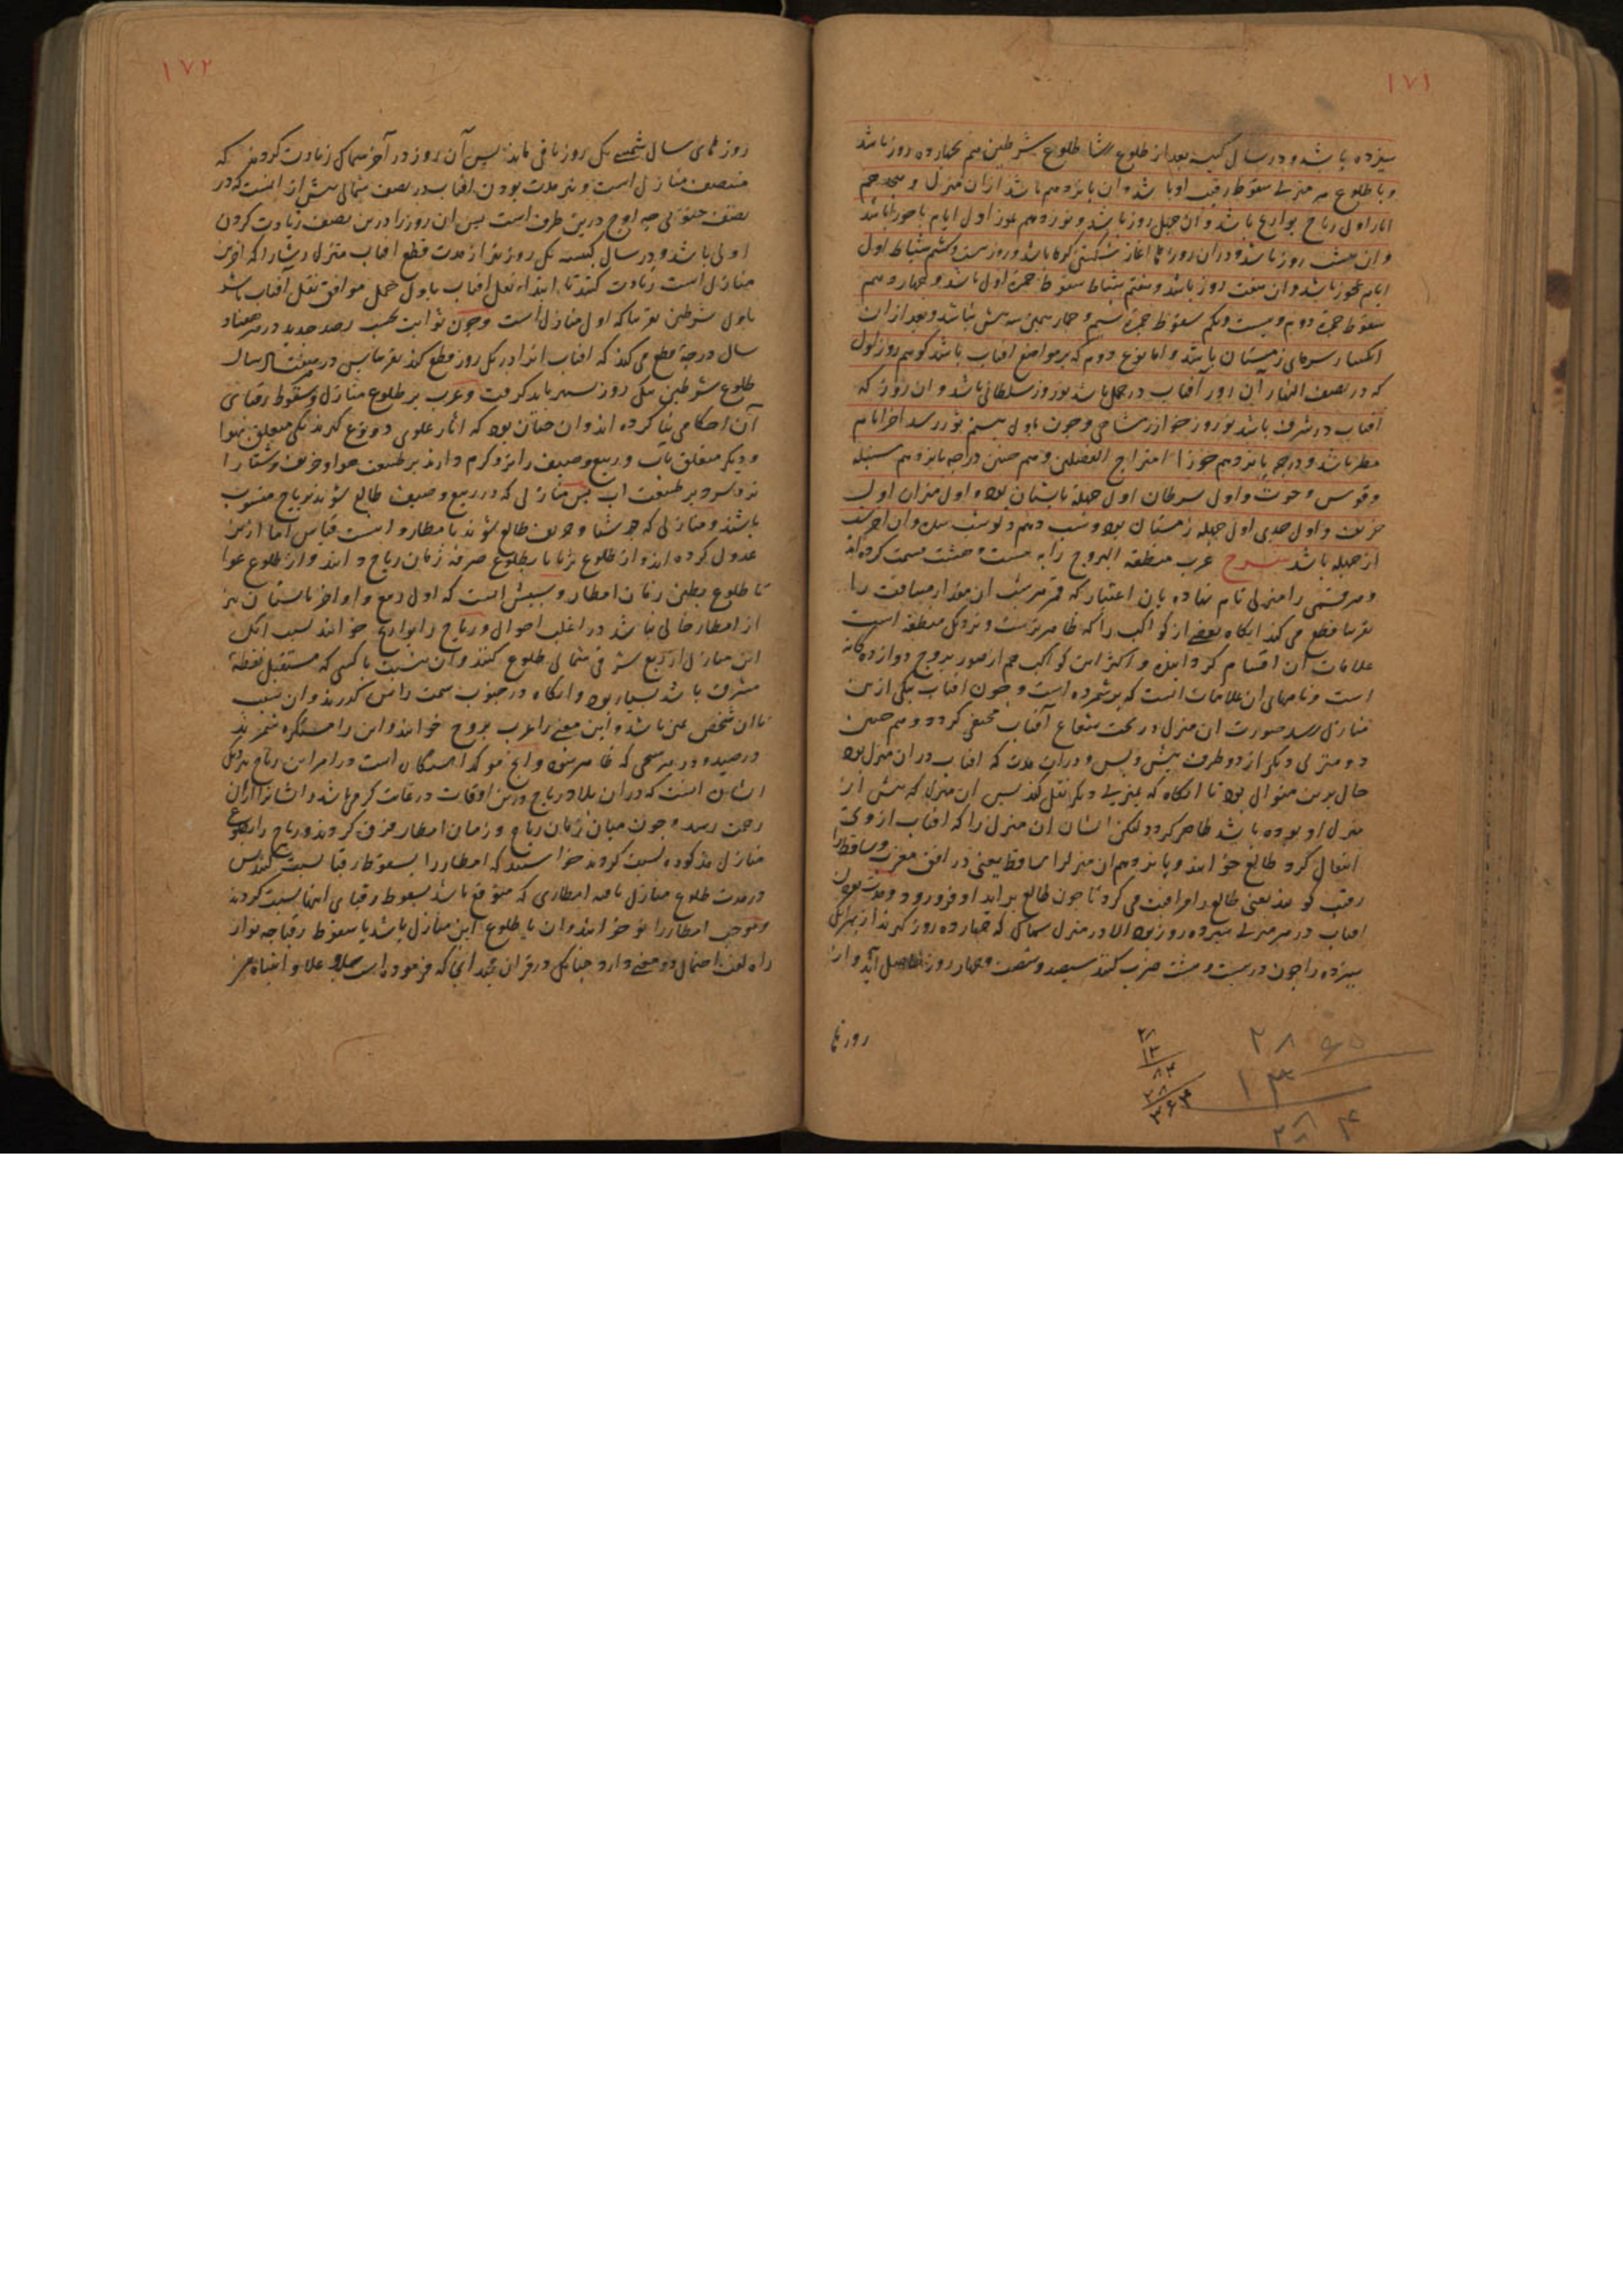 ۱۷۱
سیزده باشد و در سال کبیسه بعد از طلوع رشا طلوع شرطین هم بچهارده روز باشد
و با طلوع هر منزلی سقوط رقیب او باشد و آن پانزدهم باشد از آن منزل و
ایار اول ریاح بوارح باشد و آن چهل روز باشد و نوزدهم تموز اول ایام باحورا باشد
و آن هشت روز باشد و در آن روزها آغاز شکستن گرما باشد و روز بیست و ششم شباط اول
ایام عجوز باشد و آن هفت روز باشد و هفتم شباط سقوط جمرهٔ اول باشد و چهاردهم
سقوط جمرهٔ دوم و بیست و یکم سقوط جمرهٔ سیم و بعد از آن
انکسار سرمای زمستان باشد و اما نوع دوم که بر مواضع آفتاب باشد گوییم روز اول
که در نصف النهار آن روز آفتاب در حمل باشد نوروز سلطانی باشد و آن روز که
آفتاب در شرف باشد نوروز خوارزمشاهی و چون باول بیستم ثور رسد آخر ایام
مطر باشد و درجه پانزدهم جوزا امتزاج الفصلین و همچنین درجه پانزدهم سنبله
و قوس و حوت و اول سرطان اول چلهٔ تابستان بود و اول میزان اول
خریف و اول جدی اول چلهٔ زمستان بود و شب دهم دلو شب سده و آن آخر
از چله باشد عرب منطقة البروج را به بیست و هشت قسمت کرده‌اند
و هر قسمی را منزلی نام نهاده بآن اعتبار که قمر هر شب آن مقدار مسافت را
تقریبا قطع می کند آنگاه بعضی از کواکب را که ظاهرترست و نزدیک منطقه است
علامات آن اقسام کردانیده و اکثر این کواکب هم از صور بروج دوازده گانه
است و نامهای آن علامات اینست که برشمرده است و چون آفتاب بیکی ازین
منازل رسد صورت آن منزل در تحت شعاع آفتاب مختفی گردد و همچنین
دو منزل دیگر از دو طرف پیش و پس و در آن مدت که آفتاب در آن منزل بود
حال برین منوال بود تا آنگاه که بمنزلی دیگر نقل کند پس آن منزل که پیش از
منزل او بوده باشد ظاهر گردد لیکن ایشان آن منزل را که آفتاب از وی
انتقال کرد طالع خوانند و پانزدهم آن منزل را ساقط یعنی در افق مغرب و ساقط را
رقیب گویند یعنی طالع را مراقبت می کرد تا چون طالع برآید او فرو رود و مدت بودن
آفتاب در هر منزلی سیزده روز بود الا در منزل سماک که چهارده روز گیرند از بهر آنک
سیزده را چون در بیست و هشت ضرب کنند سیصد و شصت و چهار روز حاصل آید و از
روزها
۲۸
۱۳
۸۴
۲۸
۳۶۴
۲۸
۱۳
۱۷۲
روزهای سال شمسی یک روز باقی ماند پس آن روز در آخر سماک زیادت کردند که
منتصف منازل است و نیز مدت بودن آفتاب در نصف شمالی بیش از آنست که در
نصف جنوبی چه اوج درین طرف است پس آن روز را درین نصف زیادت کردن
اولی باشد و در سال کبیسه یک روز نیز از مدت قطع آفتاب منزل رشا را که آخرین
منازل است زیادت کنند تا ابتداء نقل آفتاب باول حمل موافق نقل آفتاب باشد
باول شرطین تقریبا که اول منازل است و چون ثوابت بحسب رصد جدید در هر هفتاد
سال درجه قطع می کند که آفتاب آنرا در یک روز قطع کند تقریبا پس در هر هفتاد سال
طلوع شرطین بیک روز سپستر باید گرفت و عرب بر طلوع منازل و سقوط رقبای
آن احکامی بنا کرده اند و آن چنان بود که آثار علوی دو نوع گیرند یکی متعلق بهوا
و دیگر متعلق بآب و ربیع و صیف را تر و گرم دارند بر طبیعت هوا و خریف و شتا را
تر و سرد بر طبیعت آب پس منازلی که در ربیع و صیف طالع شوند بریاح منسوب
باشند و منازلی که در شتا و خریف طالع شوند بامطار و اینست قیاس اما ازین
عدول کرده اند و از طلوع ثریا تا بطلوع صرفه زمان ریاح دانند و از طلوع عوا
تا طلوع بطین زمان امطار و سببش اینست که اول ربیع و اواخر تابستان نیز
از امطار خالی نباشد در اغلب احوال و ریاح را بوارح خوانند بسبب آنک
این منازل از ربع شرقی شمالی طلوع کنند و آن نسبت با کسی که مستقبل نقطهٔ
مشرق باشد بسیار بود و آنگاه در جنوب سمت راس گذرند و آن نسبت
با آن شخص یمین باشد و این معنی را عرب بروح خوانند و این را مستکره شمرند
در صید و در هر سهمی که ظاهر شود و آنچ موکد است در امر این ریاح نزدیک
ایشان اینست که در آن بلاد ریاح درین اوقات در غایت گرمی باشد و ایشانرا از آن
زحمت رسد و چون میان زمان ریاح و زمان امطار فرق کردند و ریاح را بطلوع
منازل مذکوره نسبت کردند خواستند که امطار را بسقوط رقبا نسبت کنند پس
در مدت طلوع منازل باقیه امطاری که متوقع باشد بسقوط رقبای آنها نسبت کردند
و موجب امطار را نوء خوانند و آن یا طلوع این منازل باشد یا سقوط رقبا چه نوء از
راه لغت احتمال دو معنی دارد چنانک در قرآن مجید آنجا که فرموده است